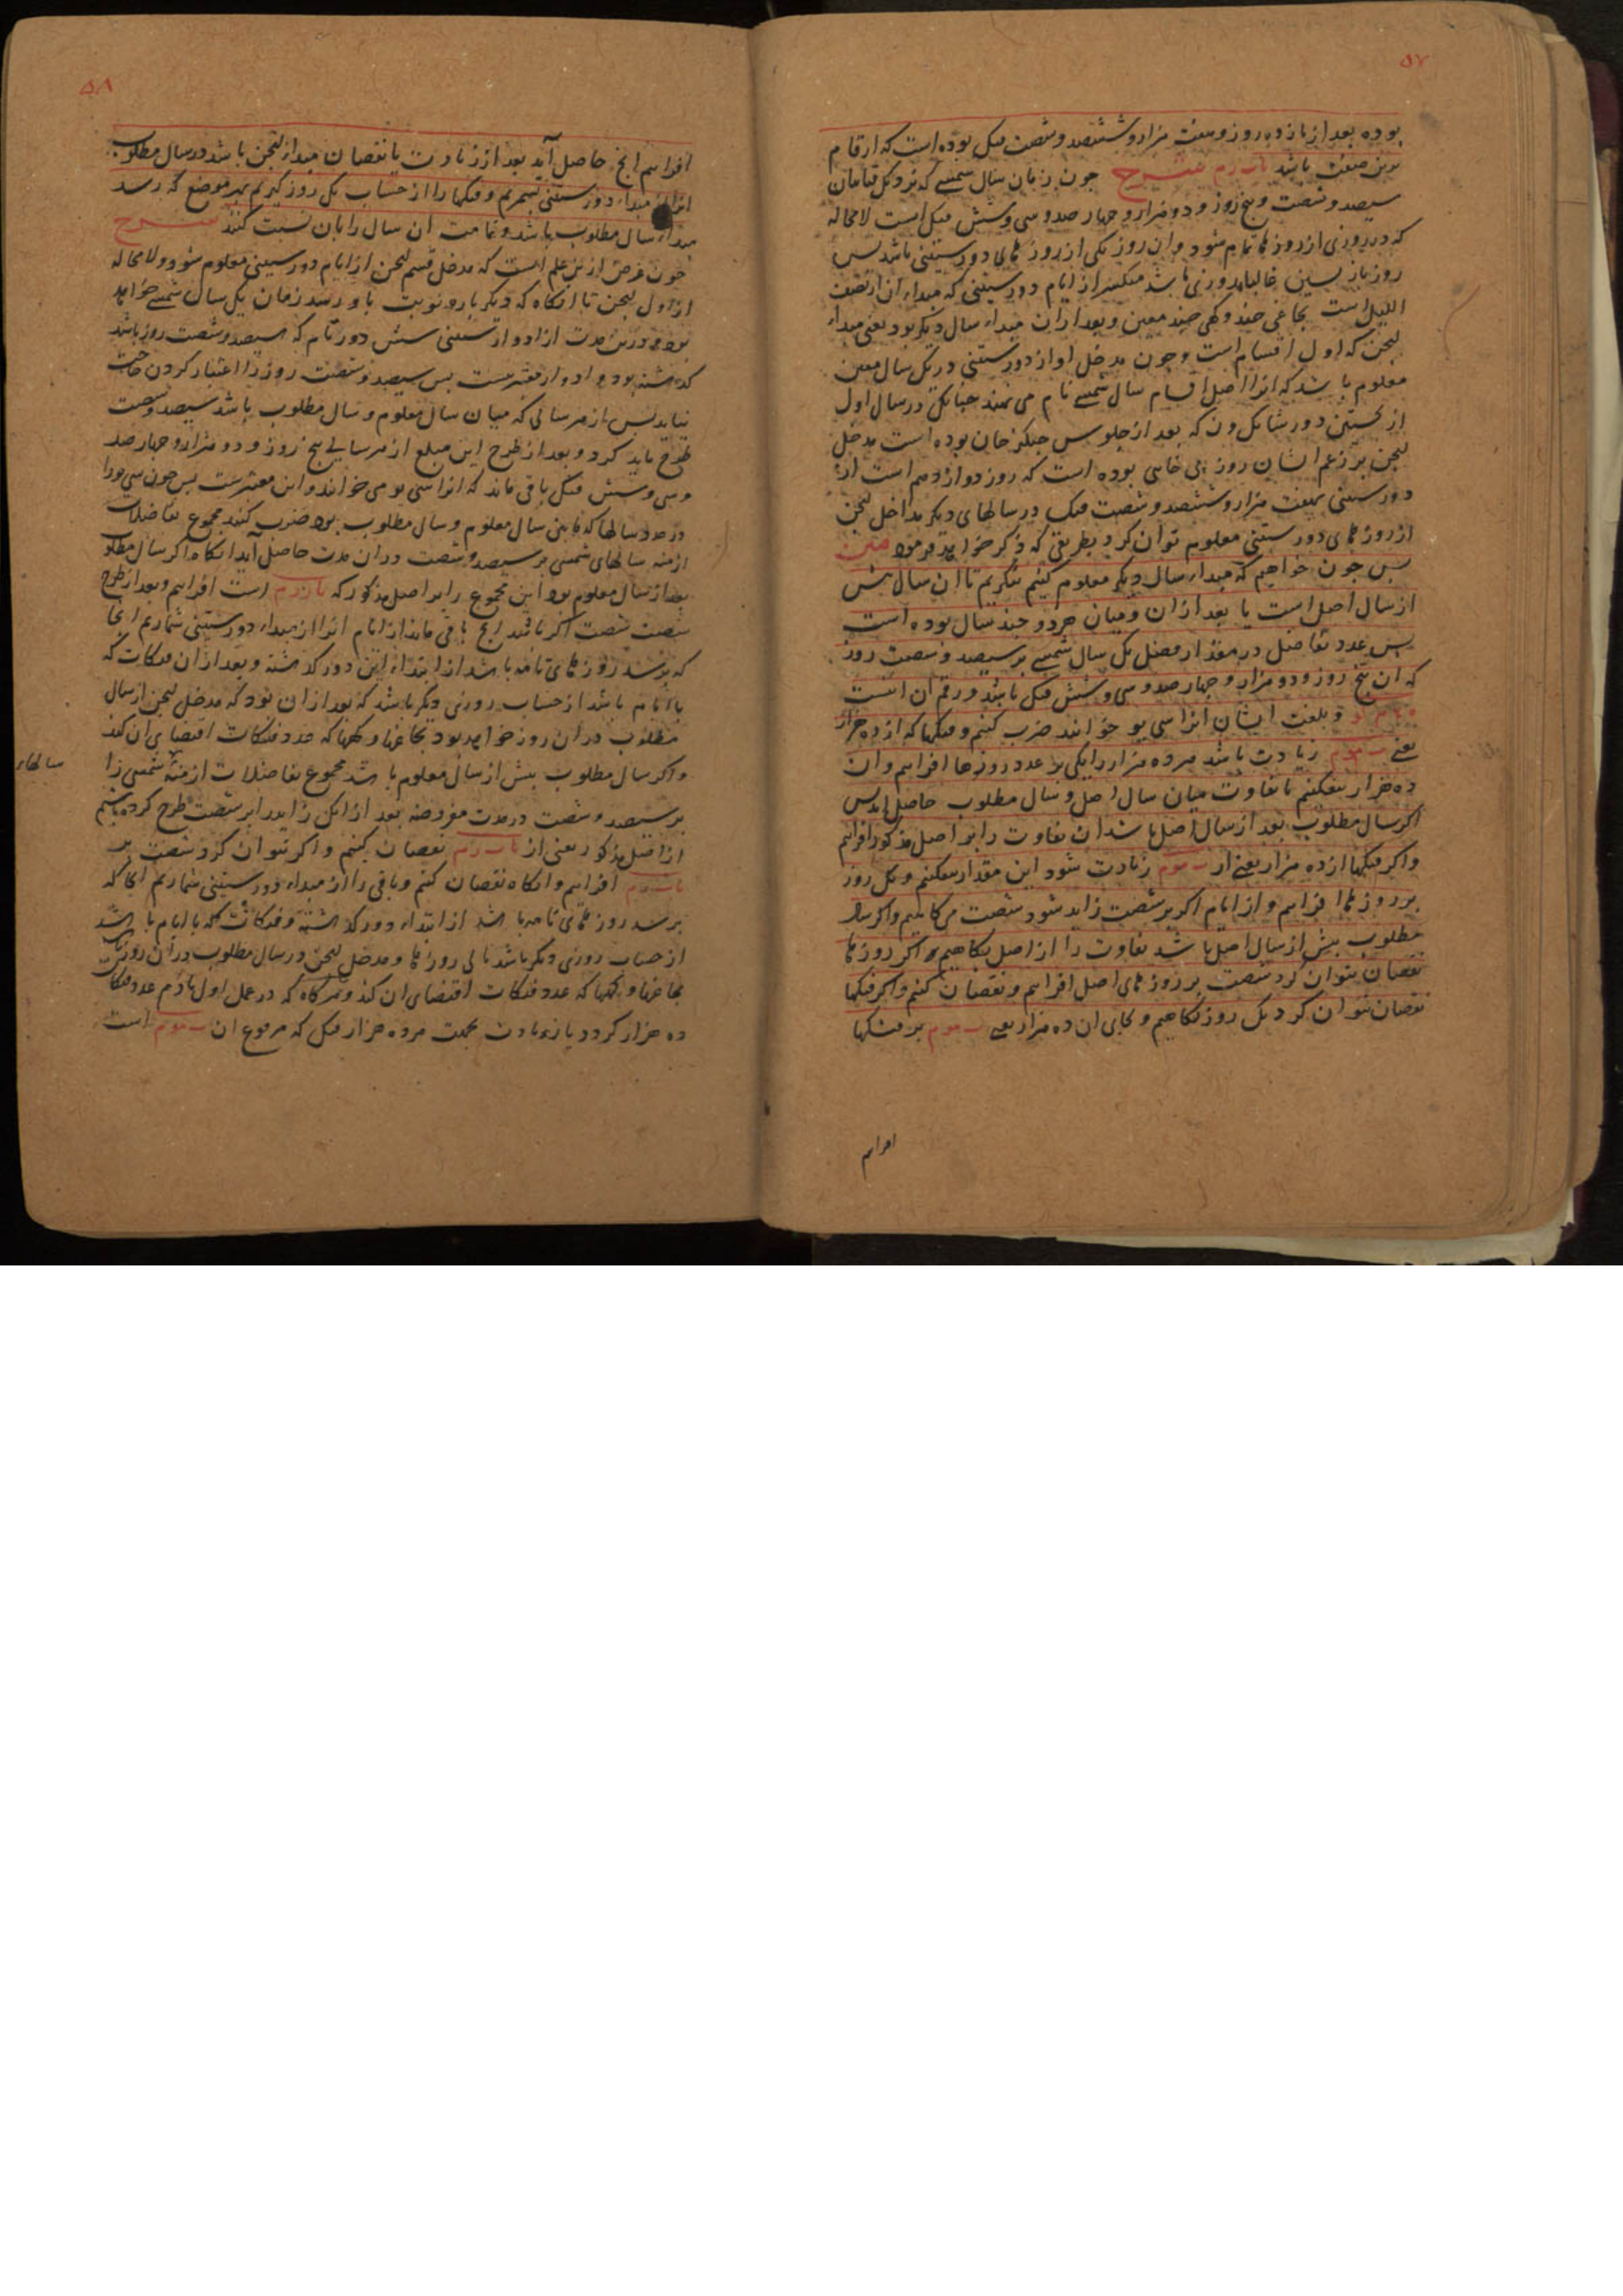 ۵۷
بوده بعد از یازده روز و هفت هزار و ششصد و شصت فنک بوده است که ارقام
برین صفت باشد شرح چون زمان سال شمسی که نزدیک قتایان
سیصد و شصت و پنج روز و دو هزار و چهار صد و سی و شش فنک است لامحاله
که در روزی از روزها تمام شود و آن روز یکی از روزهای دور ستینی باشد پس
روز بازپسین غالبا روزی باشد منکسر از ایام دور ستینی که مبداء آن از نصف
اللیل است بچاغی چند و کهی چند معین و بعد از آن مبداء سال دیگر بود یعنی مبداء
لیچن که اول اقسام است و چون مدخل او از دور ستینی در یک سال معین
معلوم باشد که انرا اصل اقسام سال شمسی نام می نهند چنانکه در سال اول
از نخستین دور شانک ون که بعد از جلوس چنکز خان بوده است مدخل
لیچن بر زعم ایشان روز بی خای بوده است که روز دوازدهم است از
دور ستینی بهفت هزار و ششصد و شصت فنک در سالهای دیگر مداخل لیچن
از روزهای دور ستینی معلوم توان کرد بطریقی که ذکر خواهد فرمود متن
پس چون خواهیم که مبداء سال دیگر معلوم کنیم بنگریم تا آن سال پیش
از سال اصل است یا بعد از آن و میان هر دو چند سال بوده است
پس عدد تفاضل در مقدار فضل یک سال شمسی بر سیصد و شصت روز
که آن پنج روز و دو هزار و چهار صد و سی و شش فنک باشد و رقم آن اینست
و بلغت ایشان انرا سی یو خوانند ضرب کنیم و فنکها که از ده هزار
یعنی زیادت باشد هر ده هزار را یکی بر عدد روزها افزاییم و آن
ده هزار بیفکنیم تا تفاوت میان سال اصل و سال مطلوب حاصل اید پس
اکر سال مطلوب بعد از سال اصل باشد آن تفاوت را بر اصل مذکور افزاییم
و اکر فنکها از ده هزار یعنی از زیادت شود این مقدار بیفکنیم و یک روز
بر روزها افزاییم و از ایام اکر بر شصت زاید شود شصت می کاهیم و اکر سال
مطلوب پیش از سال اصل باشد تفاوت را از اصل بکاهیم و اکر روزها
نقصان نتوان کرد شصت بر روزهای اصل افزاییم و نقصان کنیم و اکر فنکها
نقصان نتوان کرد یک روز بکاهیم و بجای آن ده هزار یعنی بر فنکها
افزاییم
۵۸
افزاییم انچ حاصل آید بعد از زیادت یا نقصان مبداء لیچن باشد در سال مطلوب
انرا از مبداء دور ستینی بشمریم و فنکها را از حساب یک روز کیریم بهر موضع که رسد
مبداء سال مطلوب باشد و علامت آن سال را بان نسبت کنند شرح
چون غرض ازین علم است که مدخل قسم لیچن از ایام دور ستینی معلوم شود و لامحاله
از اول لیچن تا آنکاه که دیگر بار نوبت باو رسد زمان یک سال شمسی خواهد
بود و درین مدت از ادوار ستینی شش دور تام که سیصد و شصت روز باشد
کذشته بود و ادوار معتبر نیست پس سیصد و شصت روز را اعتبار کردن حاجت
نیاید پس از هر سالی که میان سال معلوم و سال مطلوب باشد سیصد و شصت
طرح باید کرد و بعد از طرح این مبلغ از هر سالی پنج روز و دو هزار و چهار صد
و سی و شش فنک باقی ماند که انرا سی یو می خوانند و این معتبر است پس چون سی یو را
در عدد سالها که مابین سال معلوم و سال مطلوب بود ضرب کنند مجموع تفاضلات
ازمنه سالهای شمسی بر سیصد و شصت در آن مدت حاصل آید انکاه اکر سال مطلوب
بعد از سال معلوم بود این مجموع را بر اصل مذکور که است افزاییم و بعد از طرح
شصت شصت اکر باشد انچ باقی ماند از ایام انرا از مبداء دور ستینی شماریم انجا
که برسد روزهای تامه باشد از ابتداء این دور کذشته و بعد از آن فنکات که
با ایام باشد از حساب روزی دیگر باشد که بعد از آن بود که مدخل لیچن از سال
مطلوب در آن روز خواهد بود بچاغها و کهها که عدد فنکات اقتضای آن کند
و اکر سال مطلوب پیش از سال معلوم باشد مجموع تفاضلات ازمنه شمسی را
سالهاء
بر سیصد و شصت در مدت مفروضه بعد از آنک زاید را بر شصت طرح کرده باشیم
از اصل مذکور یعنی از نقصان کنیم و اکر نتوان کرد شصت بر
افزاییم و انکاه نقصان کنیم و باقی را از مبداء دور ستینی شماریم انجا که
برسد روزهای تامه باشد از ابتداء دور کذشته و فنکات که با ایام باشد
از حساب روزی دیگر باشد تالی روزها و مدخل لیچن در سال مطلوب در آن روز باشد
بچاغها و کهها که عدد فنکات اقتضای آن کند و هرکاه که در عمل اول عدد فنکات
ده هزار کردد یا زیادت بجهت هر ده هزار فنک که مرفوع آن است